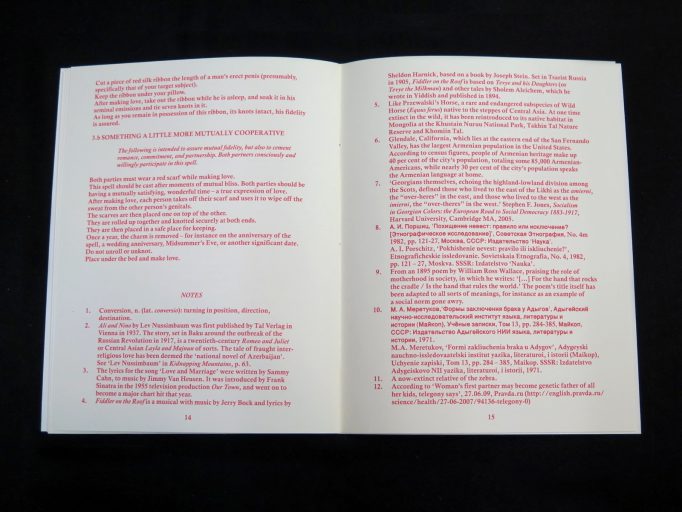 Cut a piece of red silk ribbon the length of a man's erect penis (presumably,
specifically that of your target subject).
Keep the ribbon under your pillow.
After making love, take out the ribbon while he is asleep, and soak it in his
seminal emissions and tie seven knots in it.
As long as you remain in possession of this ribbon, its knots intact, his fidelity
is assured.
3.b SOMETHING A LITTLE MORE MUTUALLY COOPERATIVE
The following is intended to assure mutual fidelity, but also to cement
romance, commitment, and partnership. Both partners consciously and
willingly participate in this spell.
Both parties must wear a red scarf while making love.
This spell should be cast after moments of mutual bliss. Both parties should be
having a mutually satisfying, wonderful time – a true expression of love.
After making love, each person takes off their scarf and uses it to wipe off the
sweat from the other person's genitals.
The scarves are then placed one on top of the other.
They are rolled up together and knotted securely at both ends.
They are then placed in a safe place for keeping.
Once a year, the charm is removed – for instance on the anniversary of the
spell, a wedding anniversary, Midsummer's Eve, or another significant date.
Do not unroll or unknot.
Place under the bed and make love.
NOTES
1. Conversion, n. (lat. conversio): turning in position, direction,
destination.
2. Ali and Nino by Lev Nussimbaum was first published by Tal Verlag in
Vienna in 1937. The story, set in Baku around the outbreak of the
Russian Revolution in 1917, is a twentieth-century Romeo and Juliet
or Central Asian Layla and Majnun of sorts. The tale of fraught inter-
religious love has been deemed the 'national novel of Azerbaijan'.
See 'Lev Nussimbaum' in Kidnapping Mountains, p. 63.
3. The lyrics for the song 'Love and Marriage' were written by Sammy
Cahn, to music by Jimmy Van Heusen. It was introduced by Frank
Sinatra in the 1955 television production Our Town, and went on to
become a major chart hit that year.
4. Fiddler on the Roof is a musical with music by Jerry Bock and lyrics by
14
Sheldon Harnick, based on a book by Joseph Stein. Set in Tsarist Russia
in 1905, Fiddler on the Roof is based on Tevye and his Daughters (or
Tevye the Milkman) and other tales by Sholem Aleichem, which he
wrote in Yiddish and published in 1894.
5. Like Przewalski's Horse, a rare and endangered subspecies of Wild
Horse (Equus ferus) native to the steppes of Central Asia. At one time
extinct in the wild, it has been reintroduced to its native habitat in
Mongolia at the Khustain Nuruu National Park, Takhin Tal Nature
Reserve and Khomiin Tal.
6. Glendale, California, which lies at the eastern end of the San Fernando
Valley, has the largest Armenian population in the United States.
According to census figures, people of Armenian heritage make up
40 per cent of the city's population, totaling some 85,000 Armenian-
Americans, while nearly 30 per cent of the city's population speaks
the Armenian language at home.
7. 'Georgians themselves, echoing the highland-lowland division among
the Scots, defined those who lived to the east of the Likhi as the amierni,
the "over-heres" in the east, and those who lived to the west as the
imierni, the "over-theres" in the west.' Stephen F. Jones, Socialism
in Georgian Colors: the European Road to Social Democracy 1883-1917,
Harvard University, Cambridge MA, 2005.
8. А. И. Поршиц, 'Похищение невест: правило или исключение?
[Этнографическое исследование]', Советская Этнография, No. 4m
1982, pp. 121-27, Москва, СССР: Издательство 'Наука'.
A. I. Poerschitz, 'Pokhishenie uevest: pravilo ili iskliuchenie?',
Etnograficheskie issledovanie, Sovietskaia Etnografia, No. 4, 1982,
pp. 121 - 27, Moskva. SSSR: Izdatelstvo 'Nauka'.
9. From an 1895 poem by William Ross Wallace, praising the role of
motherhood in society, in which he writes: '[...] For the hand that rocks
the cradle / Is the hand that rules the world.' The poem's title itself has
been adapted to all sorts of meanings, for instance as an example of
a social norm gone awry.
10. М. А. Меретуков, 'Формы заключения брака у Адыгов', Адыгейский
научно-исследовательский институт языка, литературы и
истории (Майкоп), Учёные записки, Том 13, pp. 284-385, Майкоп,
СССР: Издательство Адыгейского НИИ языка, литературы и
истории, 1971.
M.A. Meretukov, 'Formi zakliuchenia braka u Adygov', Adygeyski
nauchno-issledovatelskii institut yazika, literaturoi, i istorii (Maikop),
Uchyenie zapiski, Tom 13, pp. 284 - 385, Maikop, SSSR: Izdatelstvo
Adygeiskovo NII yazika, literaturoi, i istorii, 1971.
11. A now-extinct relative of the zebra.
12. According to 'Woman's first partner may become genetic father of all
her kids, telegony says', 27.06.09, Pravda.ru (http://english.pravda.ru/
science/health/27-06-2007/94136-telegony-0)
15